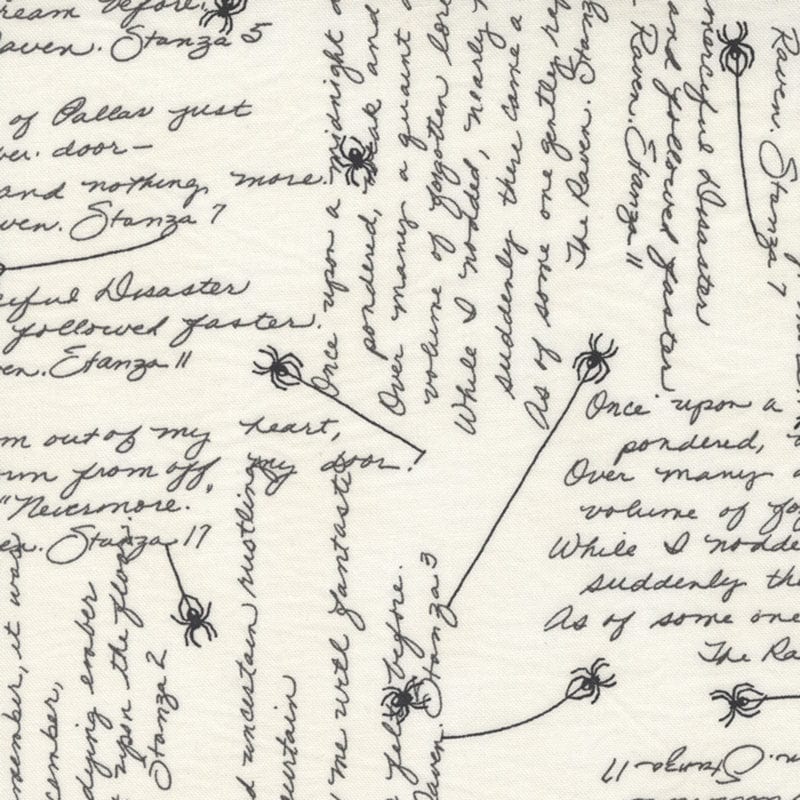 ream before.
aven. Stanza 5
of Pallas just
door—
and nothing more.
ven. Stanza 7
iful Disaster
followed faster
en. Stanza 11
m out of my heart,
from off my door!
"Nevermore."
en. Stanza 17
Once upon a midnight
pondered, weak and
Over many a quaint a
volume of forgotten lore
While I nodded, nearly n
suddenly there came a
As of some one gently
The Raven. Stanz
Raven. Stanza 11
and followed faster
merciful Disaster
Raven. Stanza 7
Once upon a
pondered,
Over many a
volume of fo
While I nodde
suddenly the
As of some one
The Ra
member, it wa
cember,
dying ember
upon the floor.
Stanza 2
d uncertain rustling
curtain
me with fantasti
felt before.
Raven. Stanza 3
Stanza 17